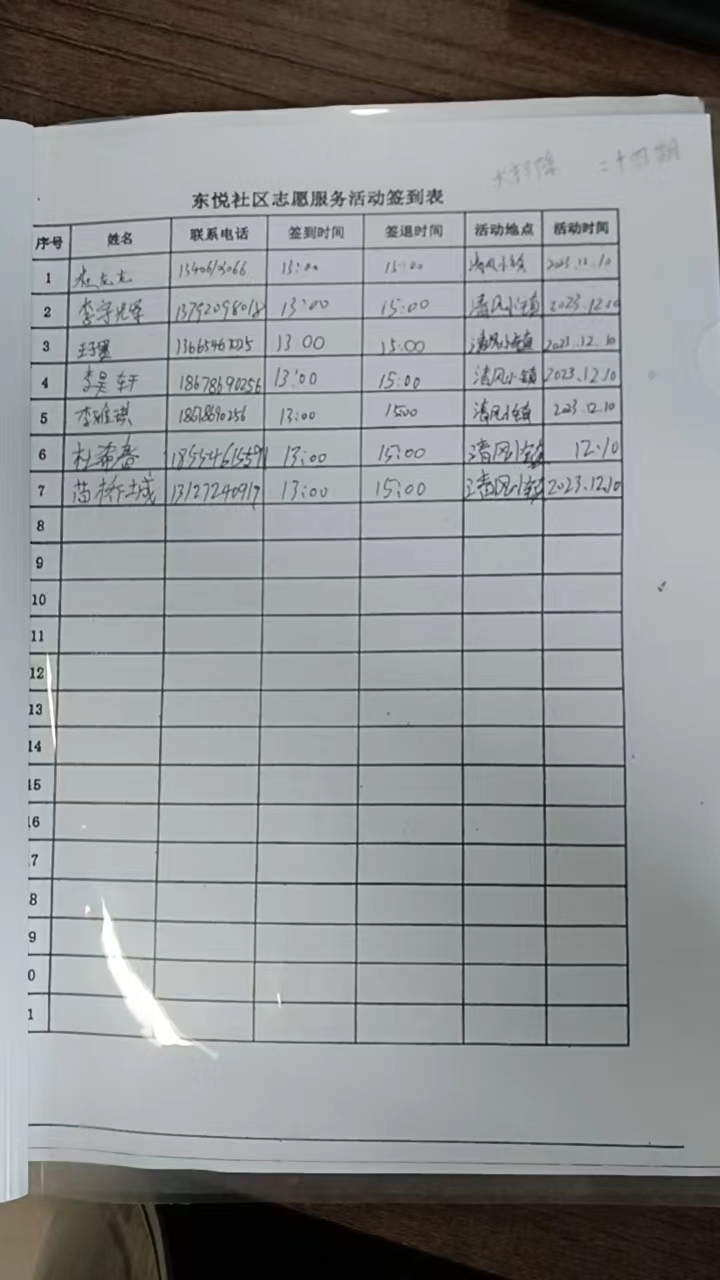 二十四期
东悦社区志愿服务活动签到表
序号 姓名 联系电话 签到时间 签退时间 活动地点 活动时间
1 13:00 15:00 清风小镇 2023.12.10
2 李宇 13:00 15:00 清风小镇 2023.12.10
3 13 00 15:00 清风小镇 2023.12.10
4 李昊轩 18678690256 13:00 15:00 清风小镇 2023.12.10
5 李雅琪 18678690256 13:00 15:00 清风小镇 2023.12.10
6 杜希睿 18554615591 13:00 15:00 清风小镇 12.10
7 苗桥城 13127240917 13:00 15:00 清风小镇 2023.12.10
8
9
10
11
12
13
14
15
16
7
8
9
0
1